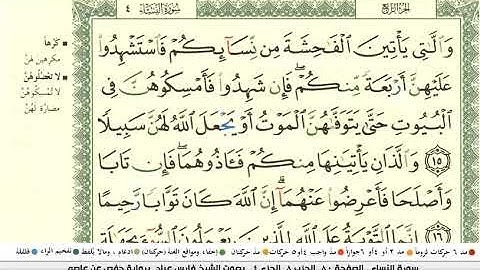 الجزء الرابع
سورة النساء
٤
وَٱلَّٰتِى يَأْتِينَ ٱلْفَٰحِشَةَ مِن نِّسَآئِكُمْ فَٱسْتَشْهِدُوا۟
عَلَيْهِنَّ أَرْبَعَةً مِّنكُمْ ۖ فَإِن شَهِدُوا۟ فَأَمْسِكُوهُنَّ فِى
ٱلْبُيُوتِ حَتَّىٰ يَتَوَفَّىٰهُنَّ ٱلْمَوْتُ أَوْ يَجْعَلَ ٱللَّهُ لَهُنَّ سَبِيلًا
١٥ وَٱلَّذَانِ يَأْتِيَٰنِهَا مِنكُمْ فَـَٔاذُوهُمَا ۖ فَإِن تَابَا
وَأَصْلَحَا فَأَعْرِضُوا۟ عَنْهُمَآ ۗ إِنَّ ٱللَّهَ كَانَ تَوَّابًا رَّحِيمًا
١٦ إِنَّمَا ٱلتَّوْبَةُ عَلَى ٱللَّهِ لِلَّذِينَ يَعْمَلُونَ ٱلسُّوٓءَ بِجَهَٰلَةٍ
كَرْهًا
مكرهين لهنّ
لا تعضلوهنّ
لا تمسكوهنّ
مضارّة لهنّ
مد ٦ حركات لزوما
مد ٢ أو ٤ أو ٦ جوازا
مد حركتان
تفخيم الراء
قلقلة
سورة النساء
الصفحة ٨٠
الحزب ٨
الجزء ٤
بصوت الشيخ فارس عباد
برواية حفص عن عاصم